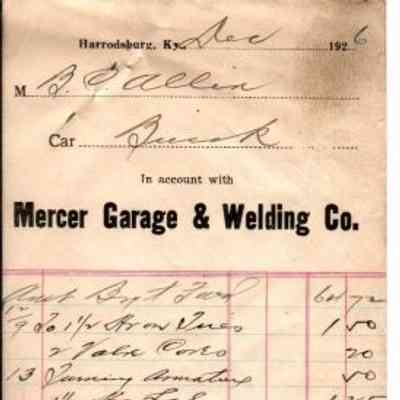 Harrodsburg, Ky., Dec 1926
M B. C. Allin
Car Buick
In account with
Mercer Garage & Welding Co.
Amt Bg't Forw'd 64 72
12/9 To 1 1/2 1 50
2 Valve Cores 20
13 Turning Armature 50